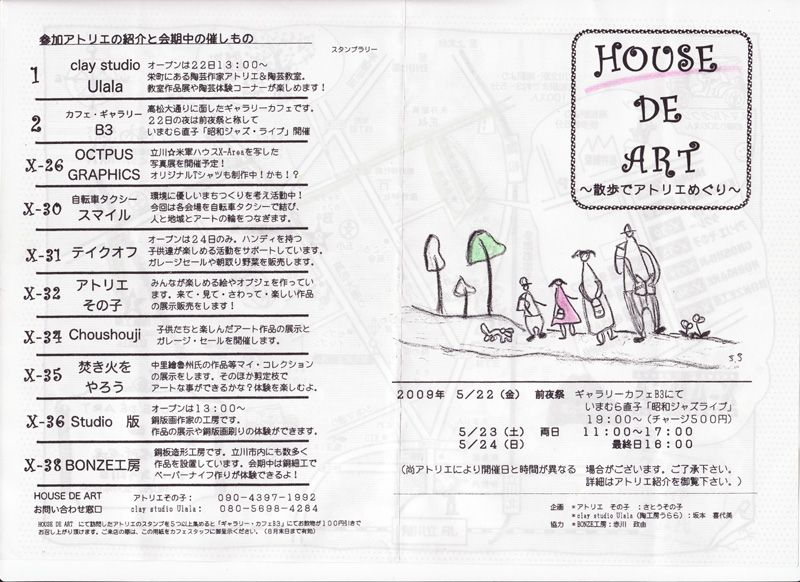 参加アトリエの紹介と会期中の催しもの
スタンプラリー
1 clay studio Ulala
オープンは22日13:00~
栄町にある陶芸作家アトリエ&陶芸教室。
教室作品展や陶芸体験コーナーが楽しめます!
2 カフェ・ギャラリー B3
高松大通りに面したギャラリーカフェです。
22日の夜は前夜祭と称して
いまむら直子「昭和ジャズ・ライブ」開催
X-26 OCTPUS GRAPHICS
立川☆米軍ハウスX-Areaを写した
写真展を開催予定!
オリジナルTシャツも制作中!かも!?
X-30 自転車タクシー スマイル
環境に優しいまちつくりを考え活動中!
今回は各会場を自転車タクシーで結び、
人と地域とアートの輪をつなぎます。
X-31 テイクオフ
オープンは24日のみ。ハンディを持つ
子供達が楽しめる活動をサポートしています。
ガレージセールや朝取り野菜を販売します。
X-32 アトリエ その子
みんなが楽しめる絵やオブジェを作ってい
ます。来て・見て・さわって・楽しい作品
の展示販売をします!
X-34 Choushouji
子供たちと楽しんだアート作品の展示と
ガレージ・セールを開催します。
X-35 焚き火を やろう
中里繪魯州氏の作品等マイ・コレクション
の展示をします。そのほか剪定枝で
アートな事ができるかな?体験を楽しむよ。
X-36 Studio 版
オープンは13:00~
銅版画作家の工房です。
作品の展示や銅版画刷りの体験ができます。
X-38 BONZE工房
銅板造形工房です。立川市内にも数多く
作品を設置しています。会期中は銅細工で
ペーパーナイフ作りが体験できるよ!
HOUSE DE ART アトリエその子: 090-4397-1992
お問い合わせ窓口 clay studio Ulala: 080-5698-4284
HOUSE DE ART にて訪問したアトリエのスタンプを5つ以上集めると「ギャラリー・カフェB3」にてお飲物が100円引きで
お召し上がり頂けます。ご来店の際は、この用紙をカフェスタッフに御呈示ください。(6月末日まで有効)
HOUSE
DE
ART
~散歩でアトリエめぐり~
S.S
2009年 5/22(金) 前夜祭 ギャラリーカフェB3にて
いまむら直子「昭和ジャズライブ」
19:00~(チャージ500円)
5/23(土) 両日 11:00~17:00
5/24(日) 最終日16:00
(尚アトリエにより開催日と時間が異なる 場合がございます。ご了承下さい。
詳細はアトリエ紹介を御覧下さい。)
企画 *アトリエ その子 :さとうその子
*clay studio Ulala(陶工房うらら):坂本 喜代美
協力 *BONZE工房:赤川 政由